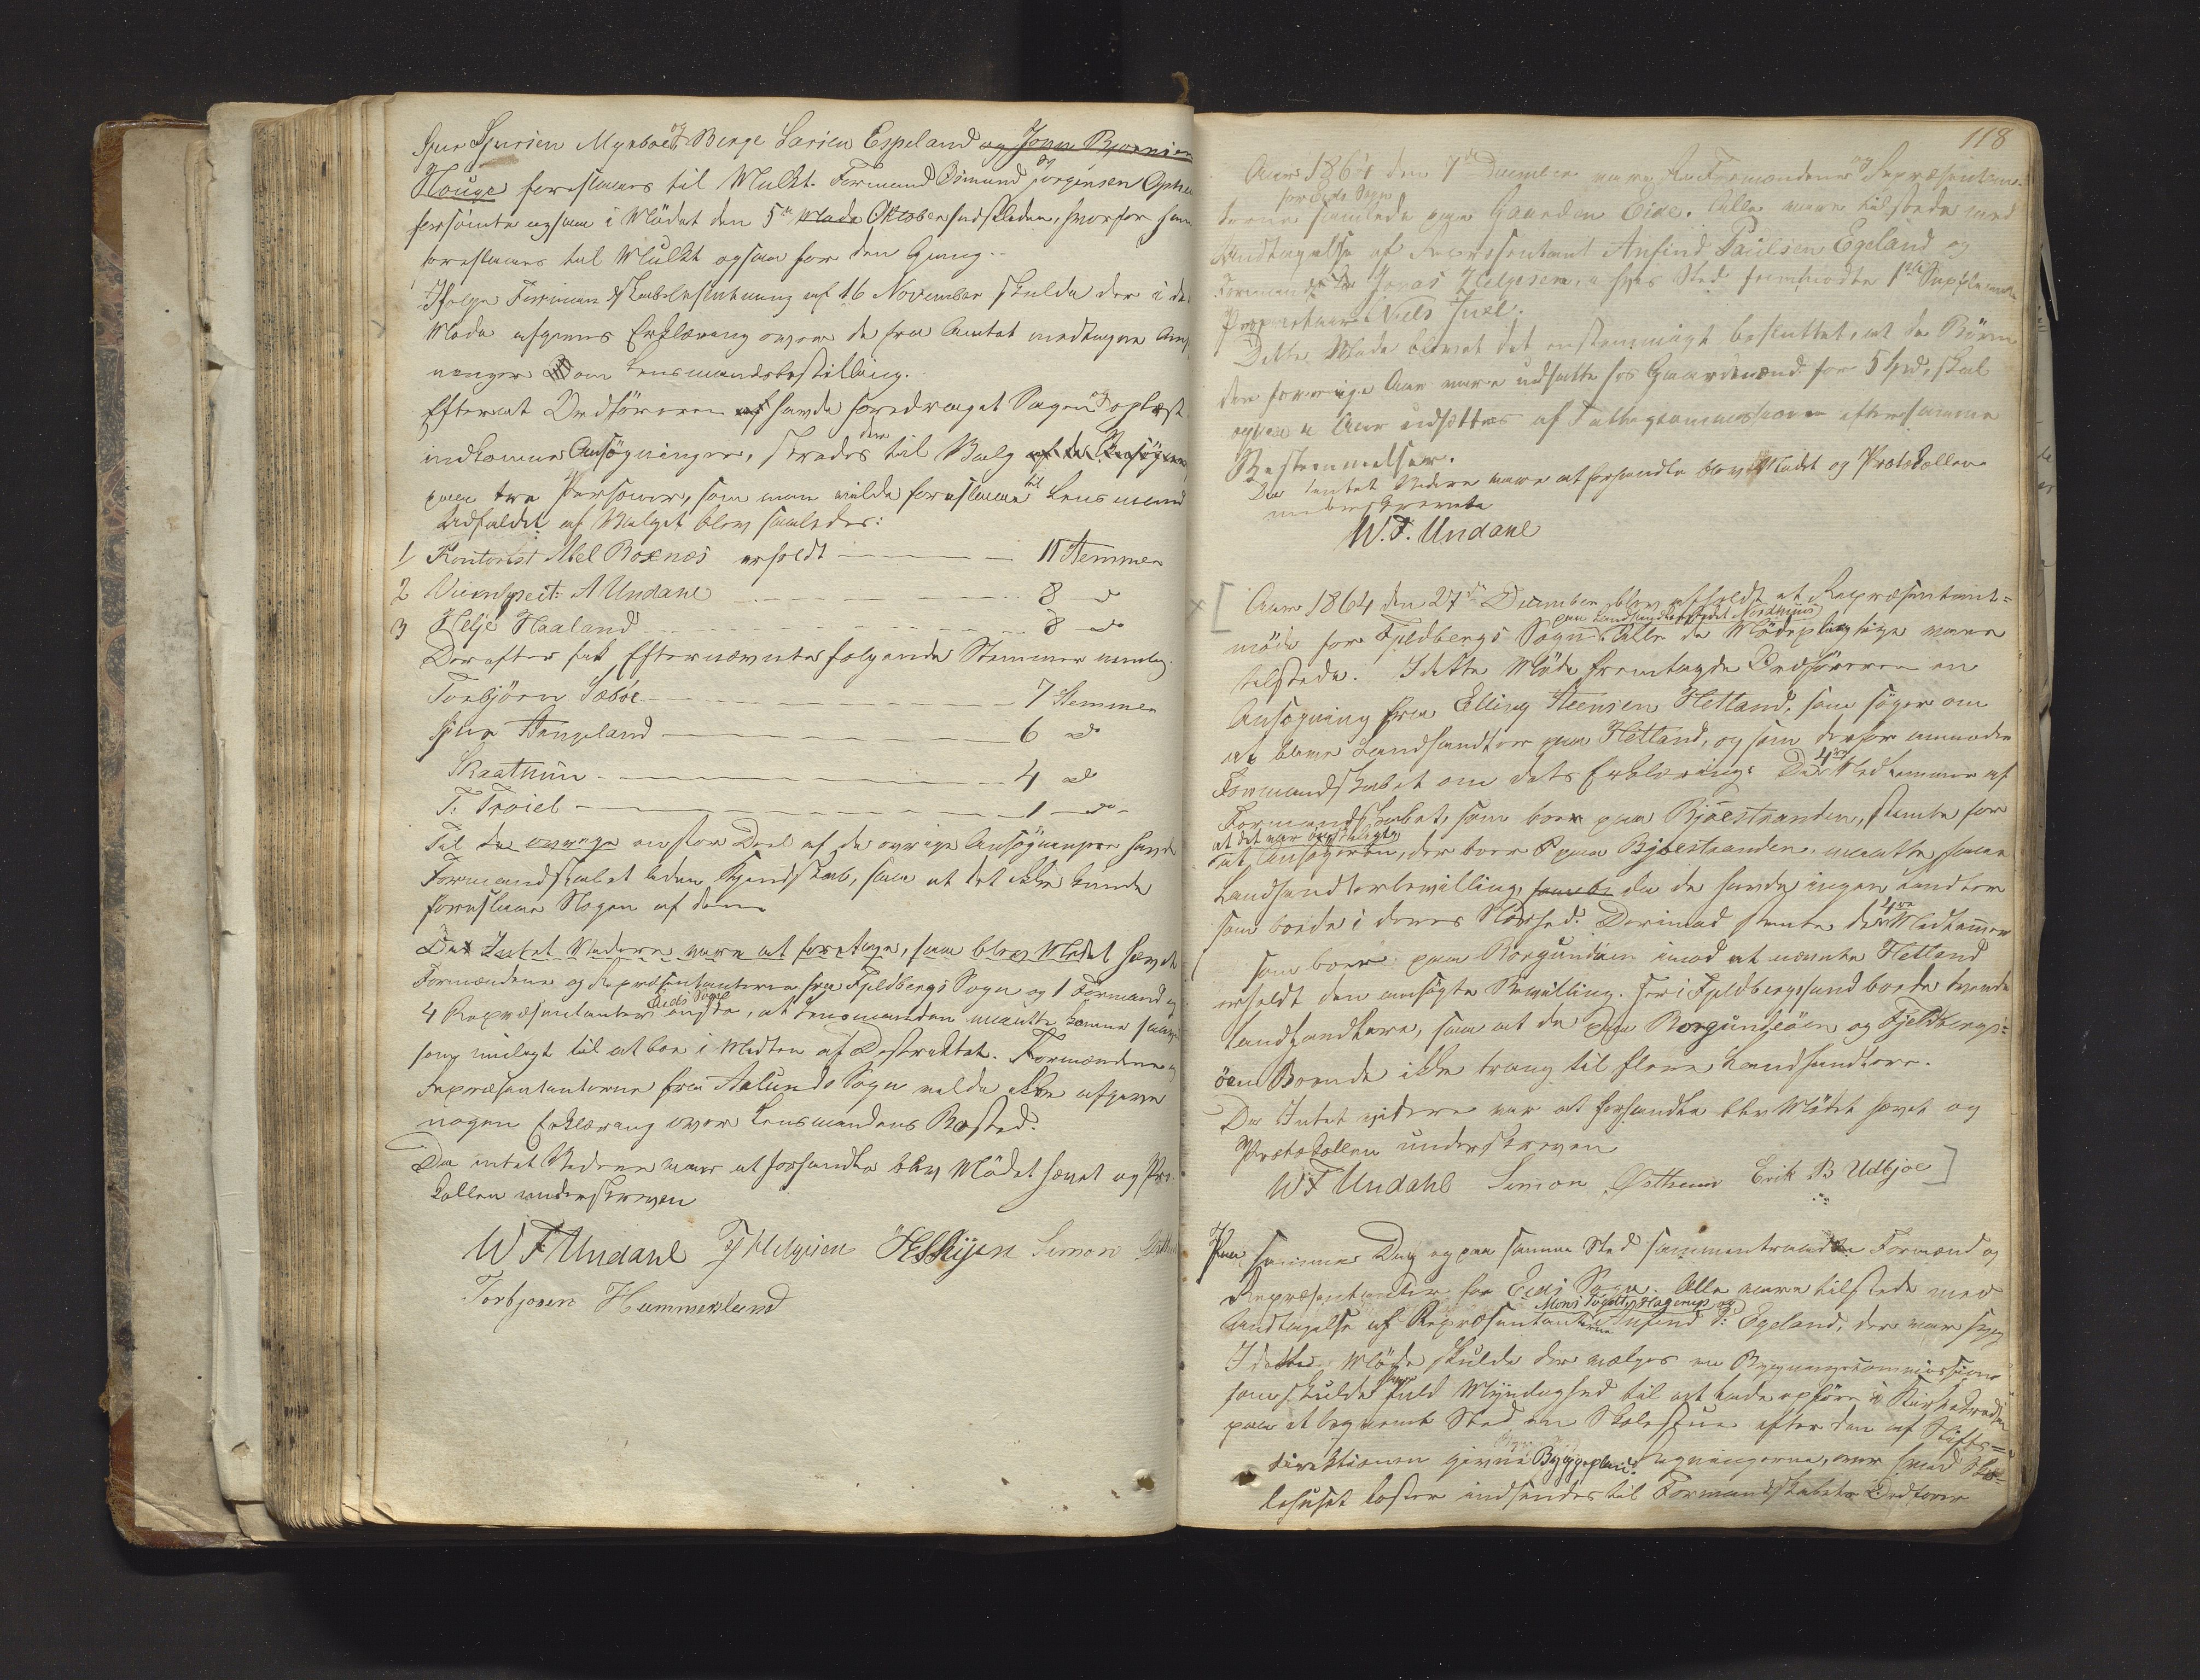 Sjur Sjursen Myrboe og Berge Larsen Espeland og Joen Bjørnsen
Houge foreslaaes til Mulkt. Formand Osmund Jørgensen
forsömte ogsaa i Mödet den 5te Möde Oktober sidstleden, hvorfor han
foreslaaes til Mulkt ogsaa for den Gang.
Ifølge Formandskabsbeslutning af 16 November skulde der i dette
Møde afgives Erklæring over de fra Amtet modtagne Ansøg-
ninger om Lensmandsbestilling.
Efterat Ordföreren havde foredraget Sagen og oplæst de
indkomne Ansögninger, skredes der til Valg af de Ansögere
paa tre Personer, som man vilde foreslaae til Lensmand
Udfaldet af Valget blev saaledes:
1 Kontorist Abel Boxnæs erholdt — 11 Stemmer
2 Viceinspect: A Undahl — 8 do
3 Helje Haaland — 8 do
Derefter fik Efternævnte følgende Stemmer nemlig
Torbjörn Sæboe — 7 Stemmer
Sjur Stangeland — 6 do
Skaatun — 4 do
T. Troiel — 1 do
Til de øvrige en stor Deel af de øvrige Ansögningerne havde
Formandskabet uden Kjendskab, saa at det ikke kunde
foreslaae Nogen af dem
Da Intet Videre var at foretage, saa blev Mödet hævet
Formændene og Repræsentanterne fra Fjeldbergs Sogn og 1 Formand og
4 Repræsentanter Eids Sogn önskte, at Lensmanden maatte komme saavidt
som muligt til at boe i Midten af Distriktet. Formændene og
Repræsentanterne fra Ølunds Sogn vilde ikke afgive
nogen Erklæring over Lensmandens Bosted.
Da intet Videre var at forhandle blev Mödet hævet og Pro-
tokollen underskreven
W F Undahl J Helgesen Simon
Torbjoren Hammerslund
118
Aar 1864 den 7de December vare Formændene og Repræsentan-
terne for Eids Sogn samlede paa Gaarden Eide. Alle vare tilstede med
Undtagelse af Repræsentant Anfind Paulsen Egeland og
Formand Jonas Helgesen, i hvis Sted fremmødte 1ste Suppleant
Proprietair Niels Juel.
I dette Møde blev det enstemmigt besluttet, at de Börn
der forrige Aar vare udsatte hos Gaardmænd for 5 Spd, skal
ogsaa i Aar udsettes af Fattigkommissionen efter samme
Bestemmelser.
Da Intet Videre var at forhandle blev Mödet og Protokollen
underskrevet
W. F. Undahl
Aar 1864 den 27de December blev afholdt et Repræsentant-
möde for Fjeldbergs Sogn paa Landhandlerstedet Nordhuus. Alle de Mödepligtige vare
tilstede. I dette Möde fremlagde Ordföreren en
Ansøgning fra Elling Steensen Hetland, som søger om
at blive Landhandler paa Hetland, og som derfor anmoder
Formandskabet om dets Erklæring. De 4re Medlemmer af
Formandskabet, som boer paa Bjoestranden, stemte for
at det var önskeligt
at Ansøgeren, der boer paa Bjoestranden, maatte faae
Landhandlerbevilling, saa be da de havde ingen Handler
som boede i deres Nærhed. Derimod stemte de 4re Medlemmer
som boer paa Borgundöen imod at nævnte Hetland
erholdt den ansøgte Bevilling. For i Fjeldbergssund boede tvende
Landhandlere, saa at de paa Borgundöen og Fjeldbergs-
öen Boende ikke trang til flere Landhandlere.
Da Intet videre var at forhandle blev Mödet hævet og
Protokollen underskreven
W F Undahl Simon Østhuus Erik B Udbjoe
Paa samme Dag og paa samme Sted sammentraadte Formænd og
Repræsentanter for Eids Sogn. Alle vare tilstede med
Undtagelse af Repræsentanterne Mons Hagerup og Anfind P: Egeland, der var syg
I dette Möde skulde der vælges en Bygningskommission
som skulde have fuld Myndighed til at lade opföre i Kirkekredsen
paa et beqvemt Sted en Skolestue efter den af Stifts-
direktionen givne Byggeplan. Regningerne, over hvad Sko-
lehuset koster indsendes til Formandskabets Ordfører